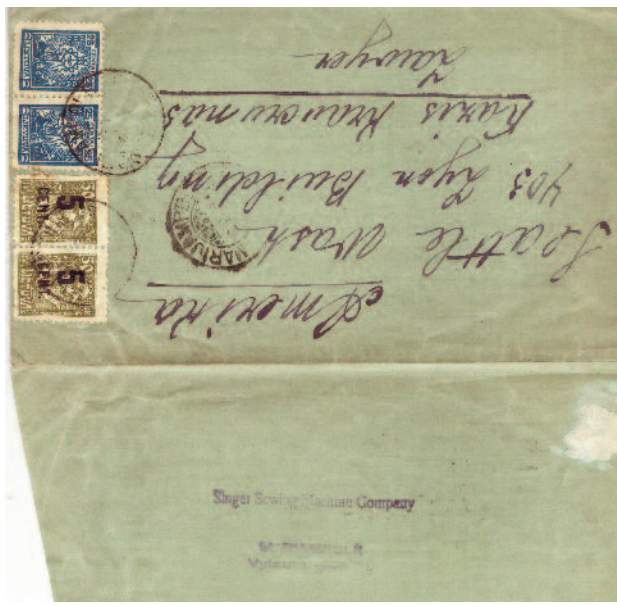 Amerika
Seattle Wash.
403 Lyon Building
Kazis Kraucunas
Lawyer
5 CENT.
5 CENT.
Singer Sewing Machine Company